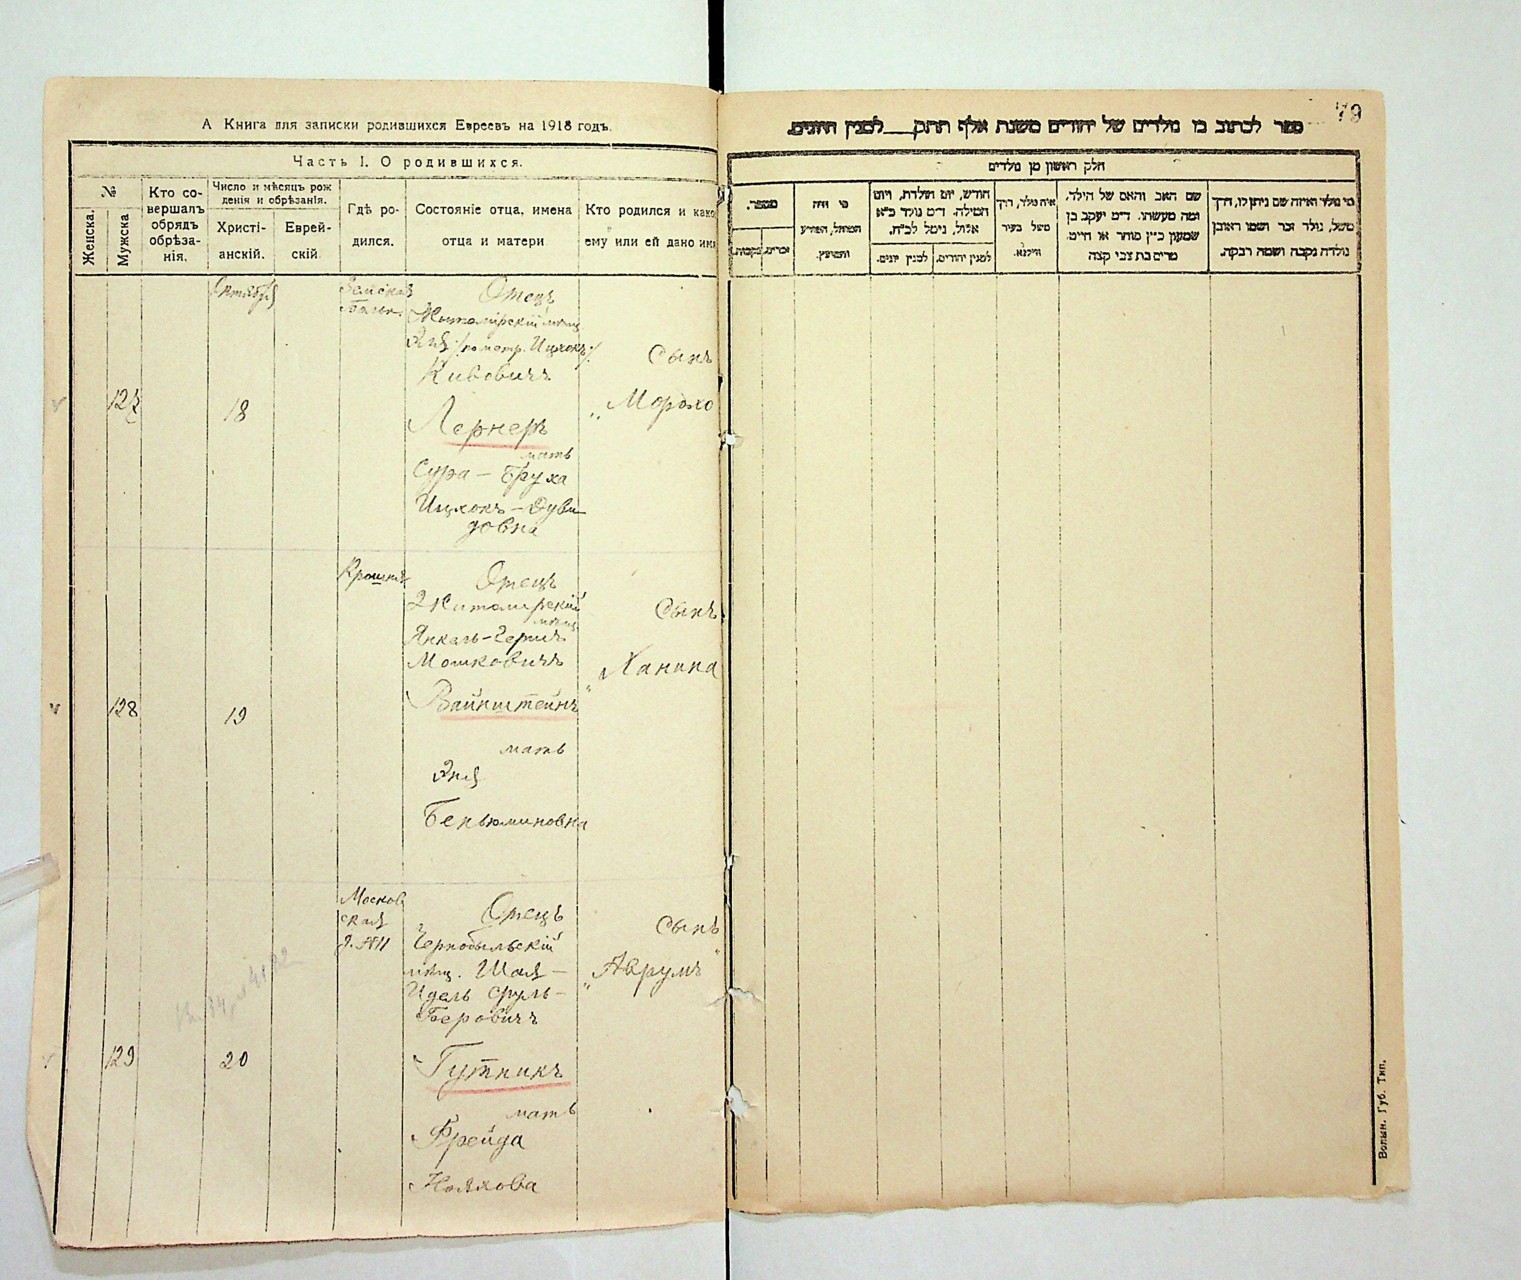 А Книга для записки родившихся Евреевъ на 1918 годъ.
Часть I. О родившихся.
№
Женска.
Мужска
Кто со-
вершалъ
обрядъ
обрѣза-
нія.
Число и мѣсяцъ рож
денія и обрѣзанія.
Христі-
анскій.
Еврей-
скій
Гдѣ ро-
дился.
Состояніе отца, имена
отца и матери
Кто родился и како
ему или ей дано имя
Октября
Отецъ
Житомірскій мѣщ
Ицхокъ
Кивовичъ
Лернеръ
мать
Сура - Бруха
Ицхокъ - Дуви
довна
Сынъ
„Мордко
127
18
Крошня
Отецъ
Житомирскій
мѣщ
Янкель-Герш
Мошковичъ
Вайнштейнъ
мать
Эня
Беньюминовна
Сынъ
„Ханина
128
19
Москов
ская
Отецъ
Чернобыльскій
мѣщ. Шая -
Идель Сруль-
Беровичъ
Гутникъ
мать
Фрейда
Ноахова
Сынъ
„Аврумъ"
129
20
79
ספר לכתוב בו נולדים של יהודים משנת אלף תתק___ למנין היונים.
חלק ראשון מן נולדים
מספר.
זכרים.
נקבות.
מי היה
המוהל, הפורע
והמוצץ.
חודש, יום הולדת, ויום
המילה. ד״מ נולד כ״א
אלול, נימל לכ״ח.
למנין יונים.
למנין יהודים.
איה נולד, דרך
משל בעיר
ווילנא.
שם האב והאם של הילד,
ומה מעשהו. ד״מ יעקב בן
שמעון כ״ץ סוחר או חייט.
מרים בת צבי קצה
מי נולד ואיזה שם ניתן לו, דרך
משל, נולד זכר ושמו ראובן
נולדה נקבה ושמה רבקה.
Волын. Губ. Тип.